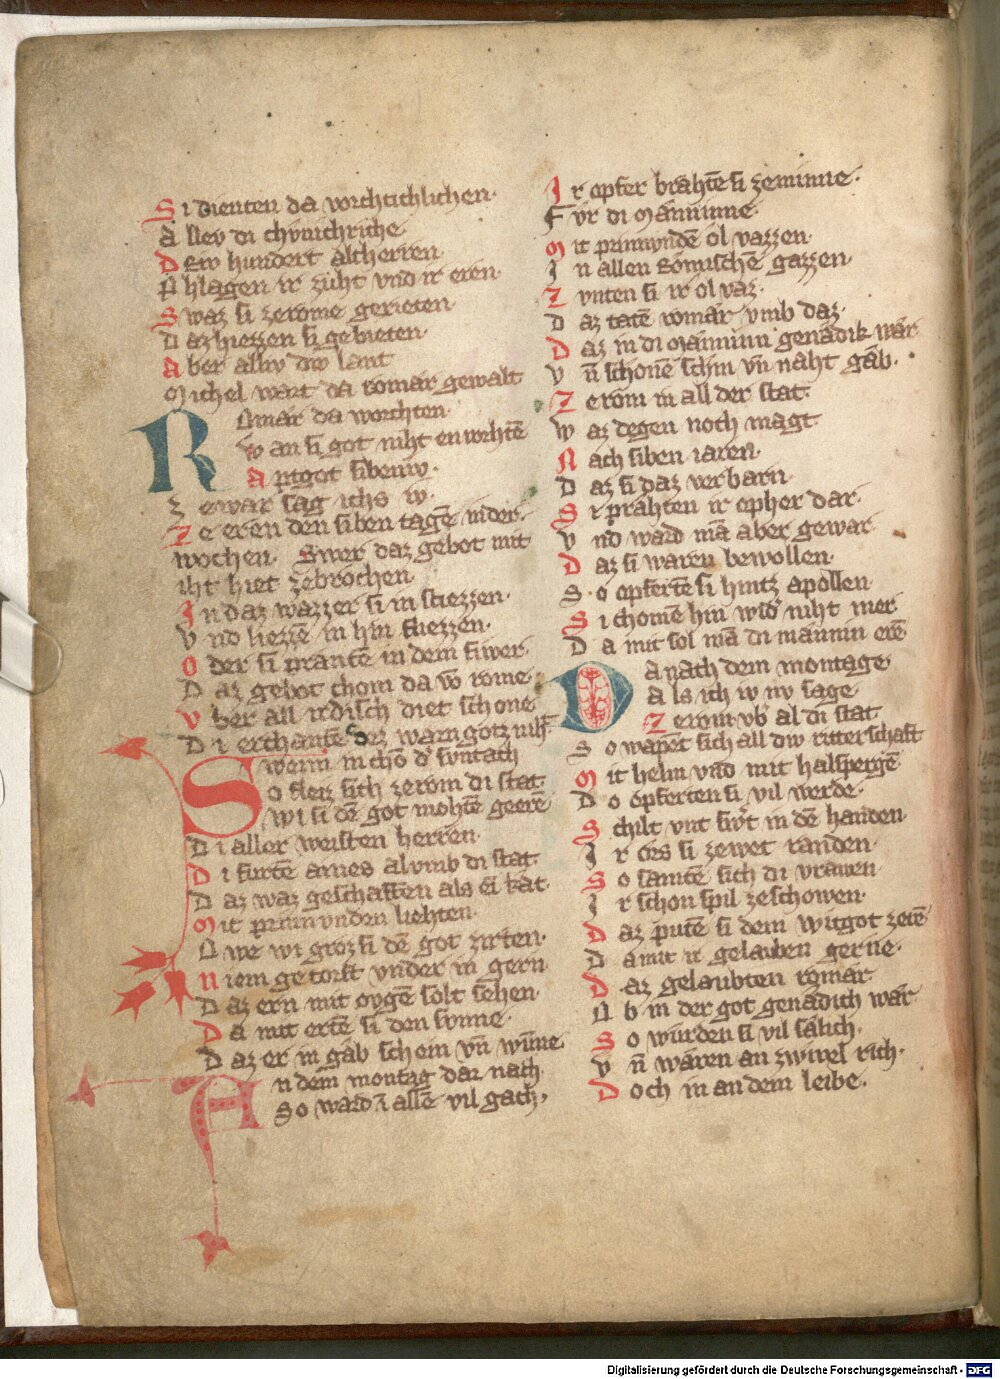 Si dienten da vorchtichlichen·
Allev di chvnichriche
Drw hundert altherren
Phlagen ir zuht vnd ir eren·
Swaz si zerome gerieten·
Daz hiezzen si gebieten·
Aber alliv diw lant
Michel wart da romar gewalt
Romar da worchten·
Wan si got niht enworhtē
Aptgot sibeniv·
zewar sag ichs iv·
Ze eren den siben tagē in der·
wochen· Swer daz gebot mit
iht hiet zebrochen·
In daz wazzer si in stiezzen·
Vnd liezzē in hin fliezzen·
Oder si prantē in dem fiwer·
Daz gebot chom da vō rome·
Vber all irdisch diet schone
Di erchanten der warn gotz niht
Swenn in chō d' svntach
So fleiz sich zerom di stat·
Wi si dē got mohtē geerē
Di aller weisten herren·
Di furtē aines al vmb di stat·
Daz waz geschaffen als ei rat·
Mit prinnvnden liehten·
Awe wi groz si dē got zirten·
Niem getorst vnder in gern
Daz ern mit ovgē solt sehen·
Da mit ertē si den svnne·
Daz er in gāb schein vn̄ wūne
An dem montag dar nach
So ward ī allē vil gach,
Ir opfer brahtē si zeminne·
Fvr di Mäninne·
Mit prinnvndē ol vazzen·
In allen Römischē gazzen·
Zvnten si ir olvaz·
Daz tatē romär vmb daz·
Daz in di Mäninn genädik wär
Vn̄ schonē schin vn̄ naht gäb·
Zerom in all der stat·
Waz degen noch magt
Nach siben iaren·
Daz si daz verbarn·
Si prahten ir opher dar·
Vnd ward mā aber gewar
Daz si waren bewollen·
So opfertē si hintz apollen
Si chomē hin wid' niht mer
Da mit sol mā di männin erē
Da nach dem montage
Als ich iv nv sage
Zerom vb' al di stat
So wapēt sich all diw ritterschaft
Mit helm vnd mit halspergē
Do opferten si vil werde·
Schilt vnt swt in dē handen
Ir ors si zewet randen·
So samtē sich di vrawen
Ir schon spil zeschowen·
Daz putē si dem witgot zerē
Da mit ir gelauben gerne·
Daz gelaubten romar
Ob in der got genädich wär
So würden si vil sälich·
Vn̄ wären an zwivel rich·
Doch in an dem leibe·
Digitalisierung gefördert durch die Deutsche Forschungsgemeinschaft - DFG